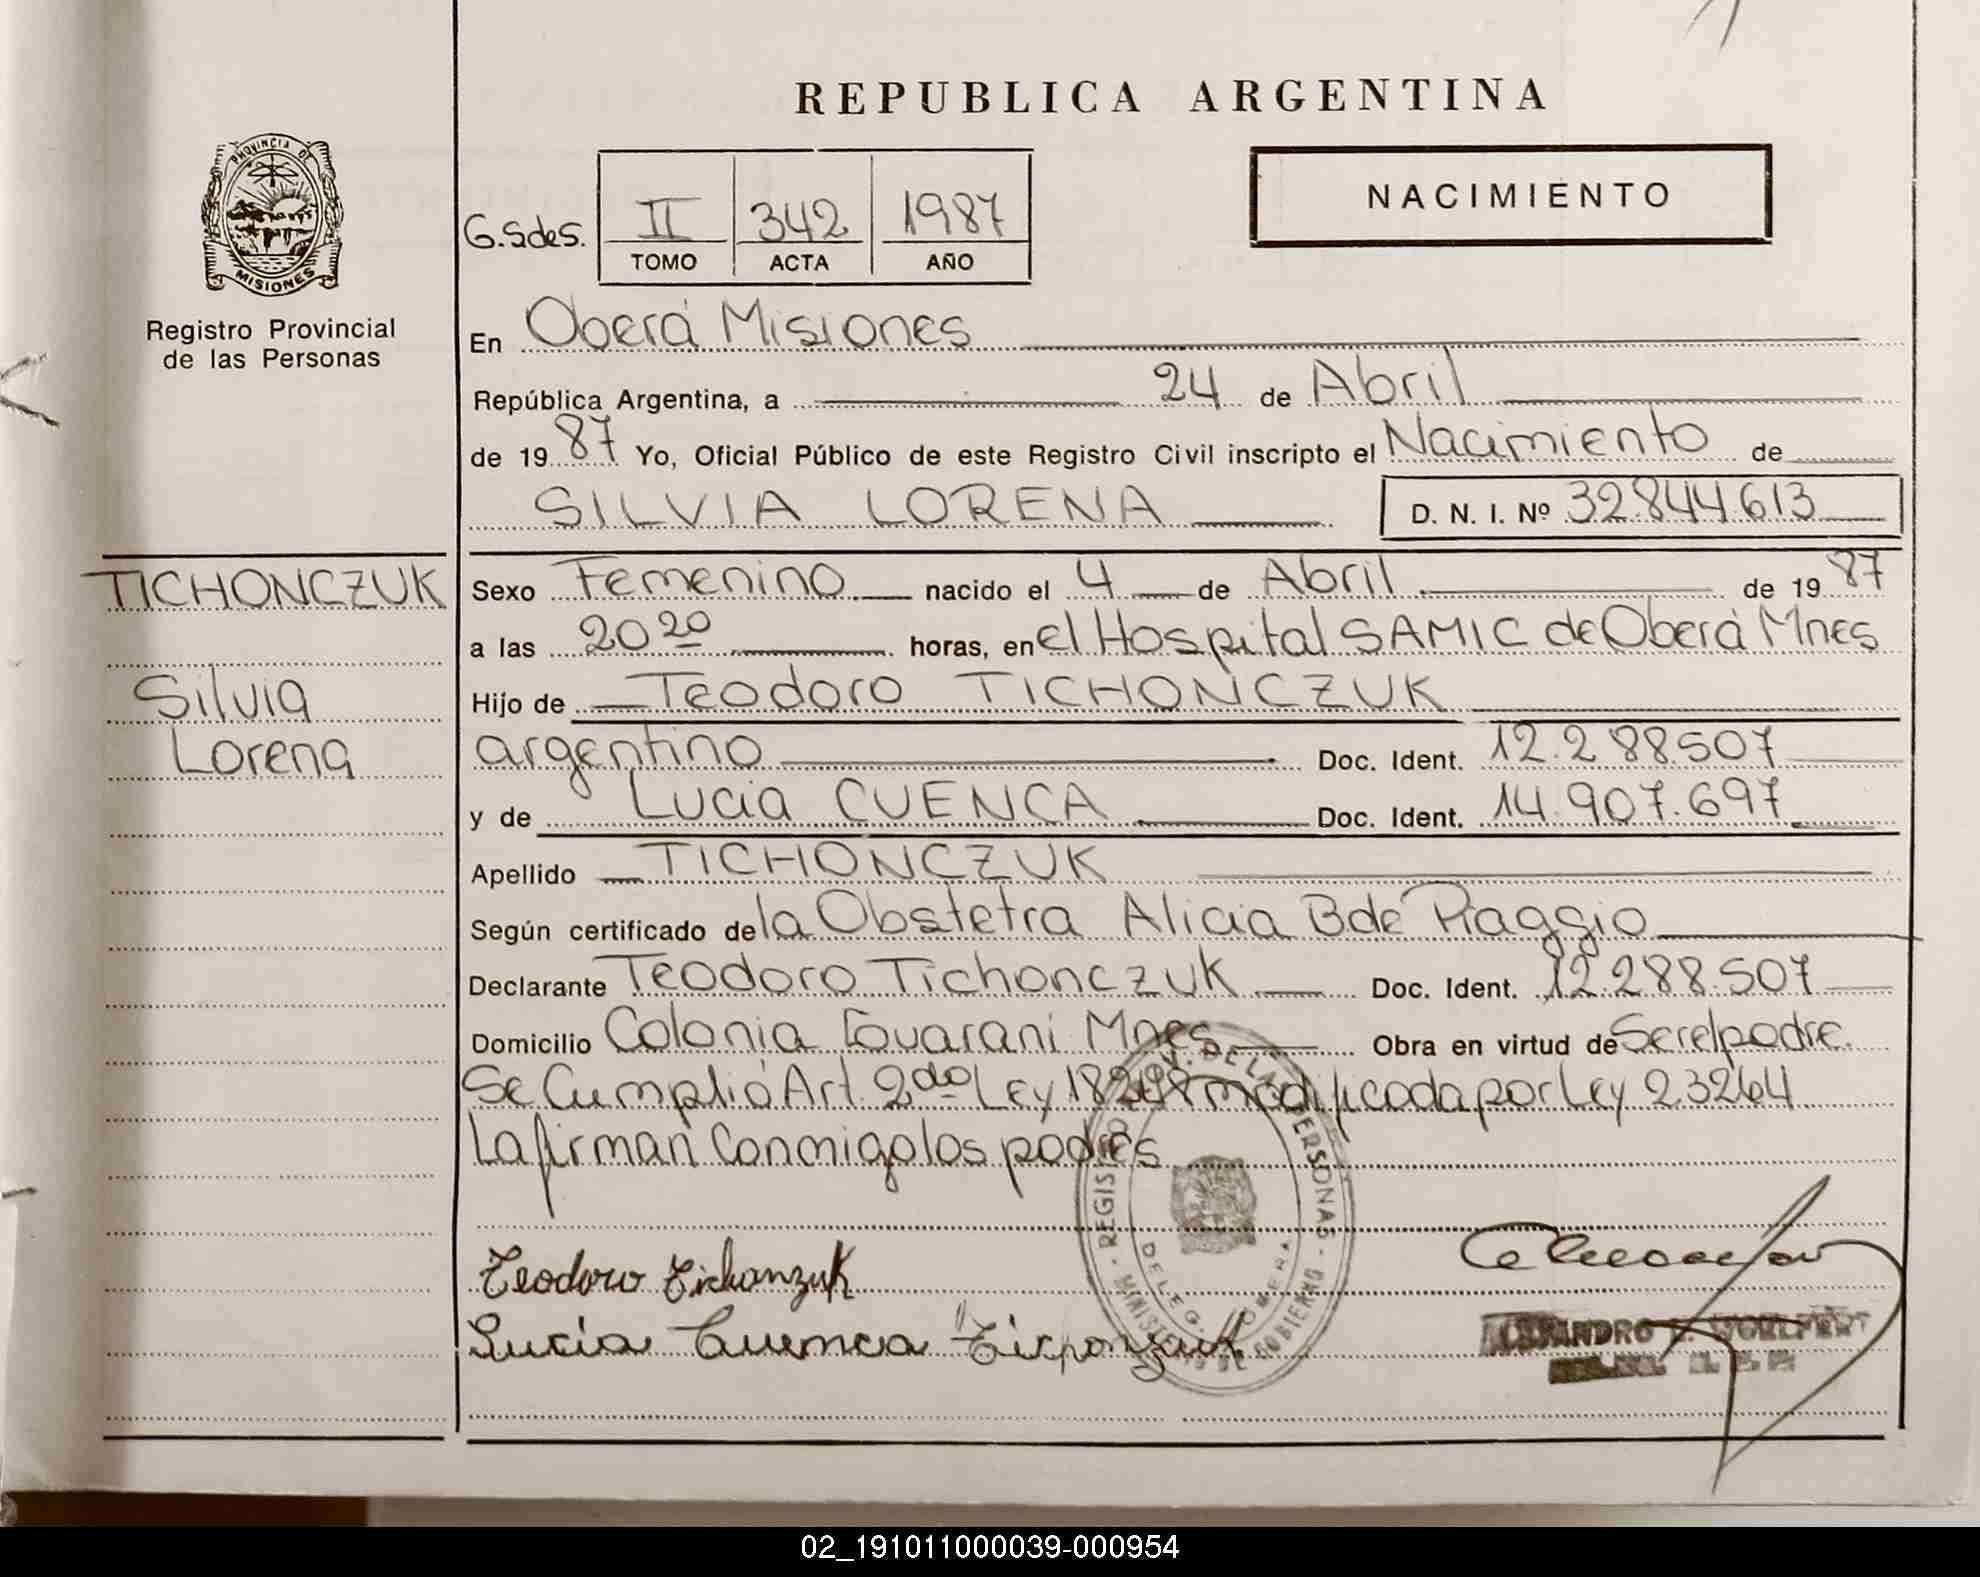 REPUBLICA ARGENTINA
PROVINCIA DE
MISIONES
Registro Provincial
de las Personas
G.Sdes. II 342 1987
TOMO ACTA AÑO
NACIMIENTO
En Oberá Misiones
República Argentina, a 24 de Abril
de 1987 Yo, Oficial Público de este Registro Civil inscripto el Nacimiento de
SILVIA LORENA D. N. I. Nº 32.844.613
TICHONCZUK
Silvia
Lorena
Sexo Femenino nacido el 4 de Abril de 1987
a las 20 20 horas, en el Hospital SAMIC de Oberá Mnes
Hijo de Teodoro TICHONCZUK
argentino Doc. Ident. 12.288.507
y de Lucia CUENCA Doc. Ident. 14.907.697
Apellido TICHONCZUK
Según certificado de la Obstetra Alicia B de Piaggio
Declarante Teodoro Tichonczuk Doc. Ident. 12.288.507
Domicilio Colonia Guarani Mnes Obra en virtud de Ser el padre.
Se Cumplió Art. 2do Ley 18248 modificada por Ley 23264
La firman Conmigo los padres
Teodoro Tichanzuk
Lucia Cuenca Ticponzuk
MINISTERIO DE GOBIERNO
DELEG.
02_191011000039-000954